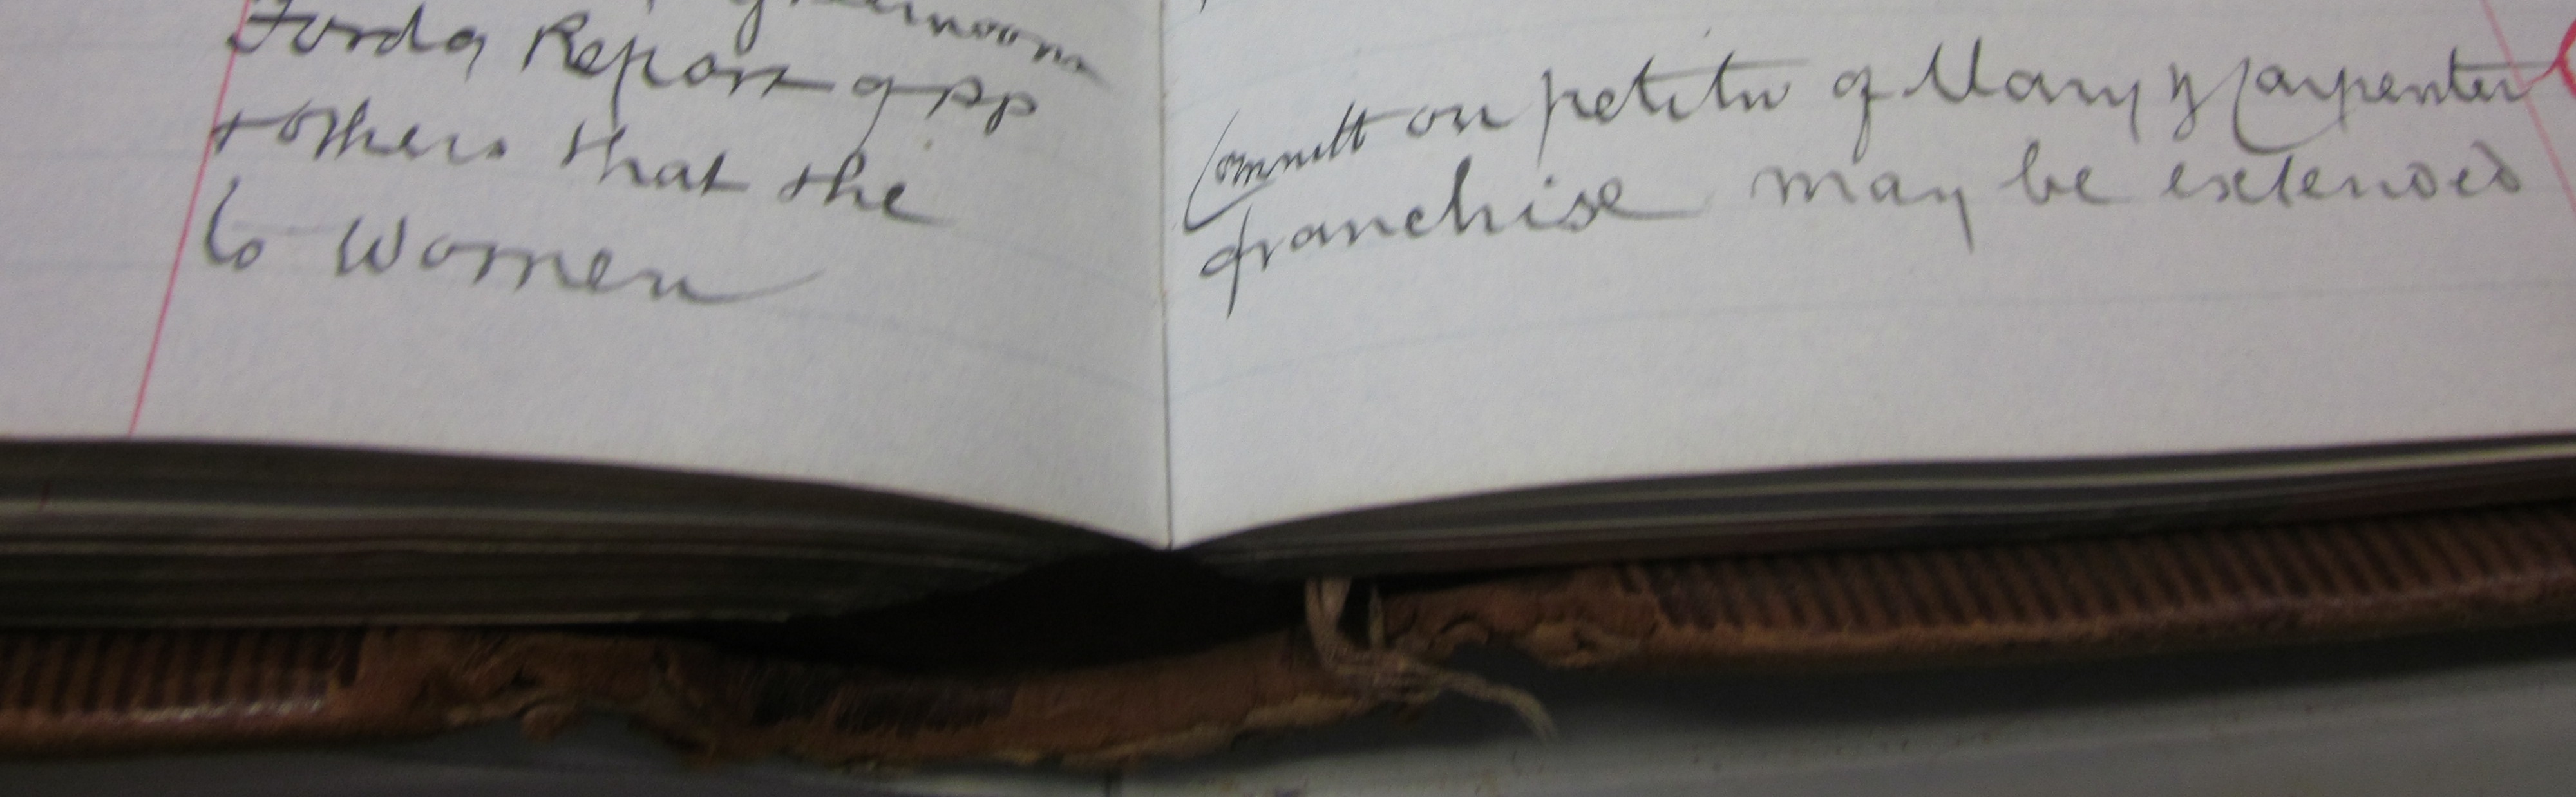 afternoon
Fordg Report of pp Committ on petitn of Mary y Carpenter
+ others that the franchise may be extended
to Women